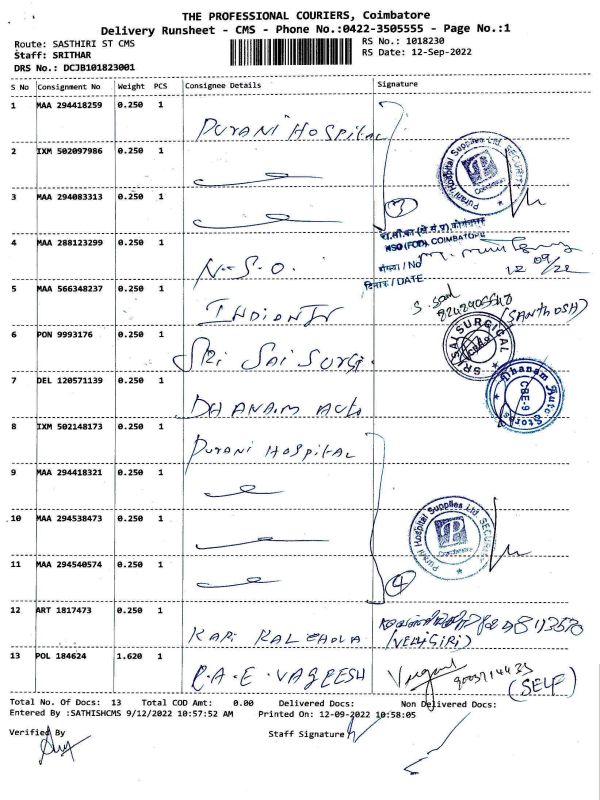 THE PROFESSIONAL COURIERS, Coimbatore
Delivery Runsheet - CMS - Phone No.:0422-3505555 - Page No.:1
Route: SASTHIRI ST CMS
Staff: SRITHAR
DRS No.: DCJB101823001
RS No.: 1018230
RS Date: 12-Sep-2022
S No Consignment No Weight PCS Consignee Details Signature
1 MAA 294418259 0.250 1 PURANI HOSPITAL
2 IXM 502097986 0.250 1
Purani Hospital Supplies Ltd. SECURITY
Coimbatore
3 MAA 294083313 0.250 1 3
NSO (FOD), COIMBATORE
संख्या / No
दिनांक / DATE
4 MAA 288123299 0.250 1 N.S.O. 12/09/22
5 MAA 566348237 0.250 1
(SANTHOSH)
6 PON 9993176 0.250 1 SRI SAI SURGI.
SRI SAI SURGICAL
7 DEL 120571139 0.250 1 DHANAM AUTO
Dhanam Auto Stores
CBE-9
8 IXM 502148173 0.250 1 PURANI HOSPITAL
9 MAA 294418321 0.250 1
10 MAA 294538473 0.250 1
Purani Hospital Supplies Ltd. SECURITY
Coimbatore
11 MAA 294540574 0.250 1 4
12 ART 1817473 0.250 1
(VELLIGIRI)
13 POL 184624 1.620 1 R.A.E. VAGEESH
(SELF)
Total No. Of Docs: 13 Total COD Amt: 0.00 Delivered Docs: Non Delivered Docs:
Entered By :SATHISHCMS 9/12/2022 10:57:52 AM Printed On: 12-09-2022 10:58:05
Verified By Staff Signature